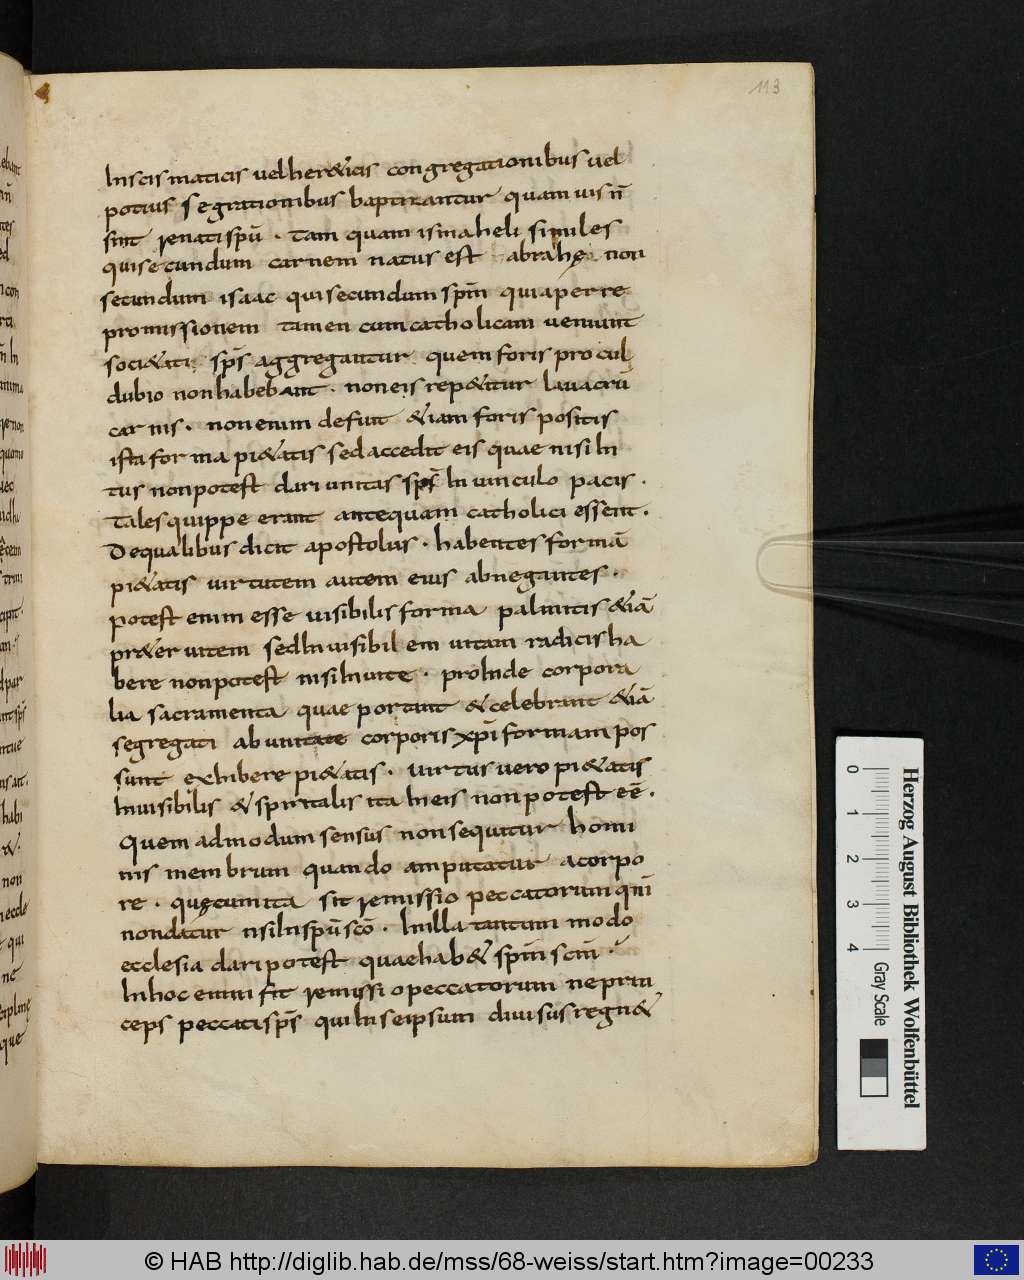 113
Inscismaticis uelher&icis congregationibus uel
potius segrationibus baptizantur quamuis n̄
sint renatispū · tamquam ismaheli similes
quisecundum carnem natus est abrahę non
secundum isaac quisecundum spm̄ quiaperre
promissionem tamen cumcatholicam ueniunt
soci&ati sp̄s aggregantur quemforis procul
dubio nonhabebant · noneis rep&itur lauacrū
carnis · nonenim defunt &iam foris positis
istaforma pi&atis sedaccedit eis quae nisiIn
tus nonpotest dari unitas sp̄s Inuinculo pacis ·
Talesquippe erant antequam catholici essent ·
Dequalibus dicit apostolus · habentes formā
pi&atis uirtutem autem eius abnegantes ·
potest enim esse uisibilis forma palmitis &iā
pr&er uitem sedInuisibilem uitam radicisha
bere nonpotest nisiInuite · proInde corpora
lia sacramenta quae portant & celebrant &iā
segregati abunitate corporis xp̄i formam pos
sunt exhibere pi&atis · uirtus uero pi&atis
Inuisibilis & spiritalis ita Ineis nonpotest eē ·
Quemadmodum sensus nonsequitur homi
nis membrum quando amputatur acorpo
re · quęcumita sit remissio peccatorum qm̄
nondatur nisiInspū scō · Inilla tantum modo
ecclesia daripotest quaehab& spm̄ scm̄ ·
Inhoc enim fit remissio peccatorum neprin
ceps peccatisp̄s quiInseipsum diuisusregn&
Herzog August Bibliothek Wolfenbüttel
0 1 2 3 4 Gray Scale
© HAB http://diglib.hab.de/mss/68-weiss/start.htm?image=00233